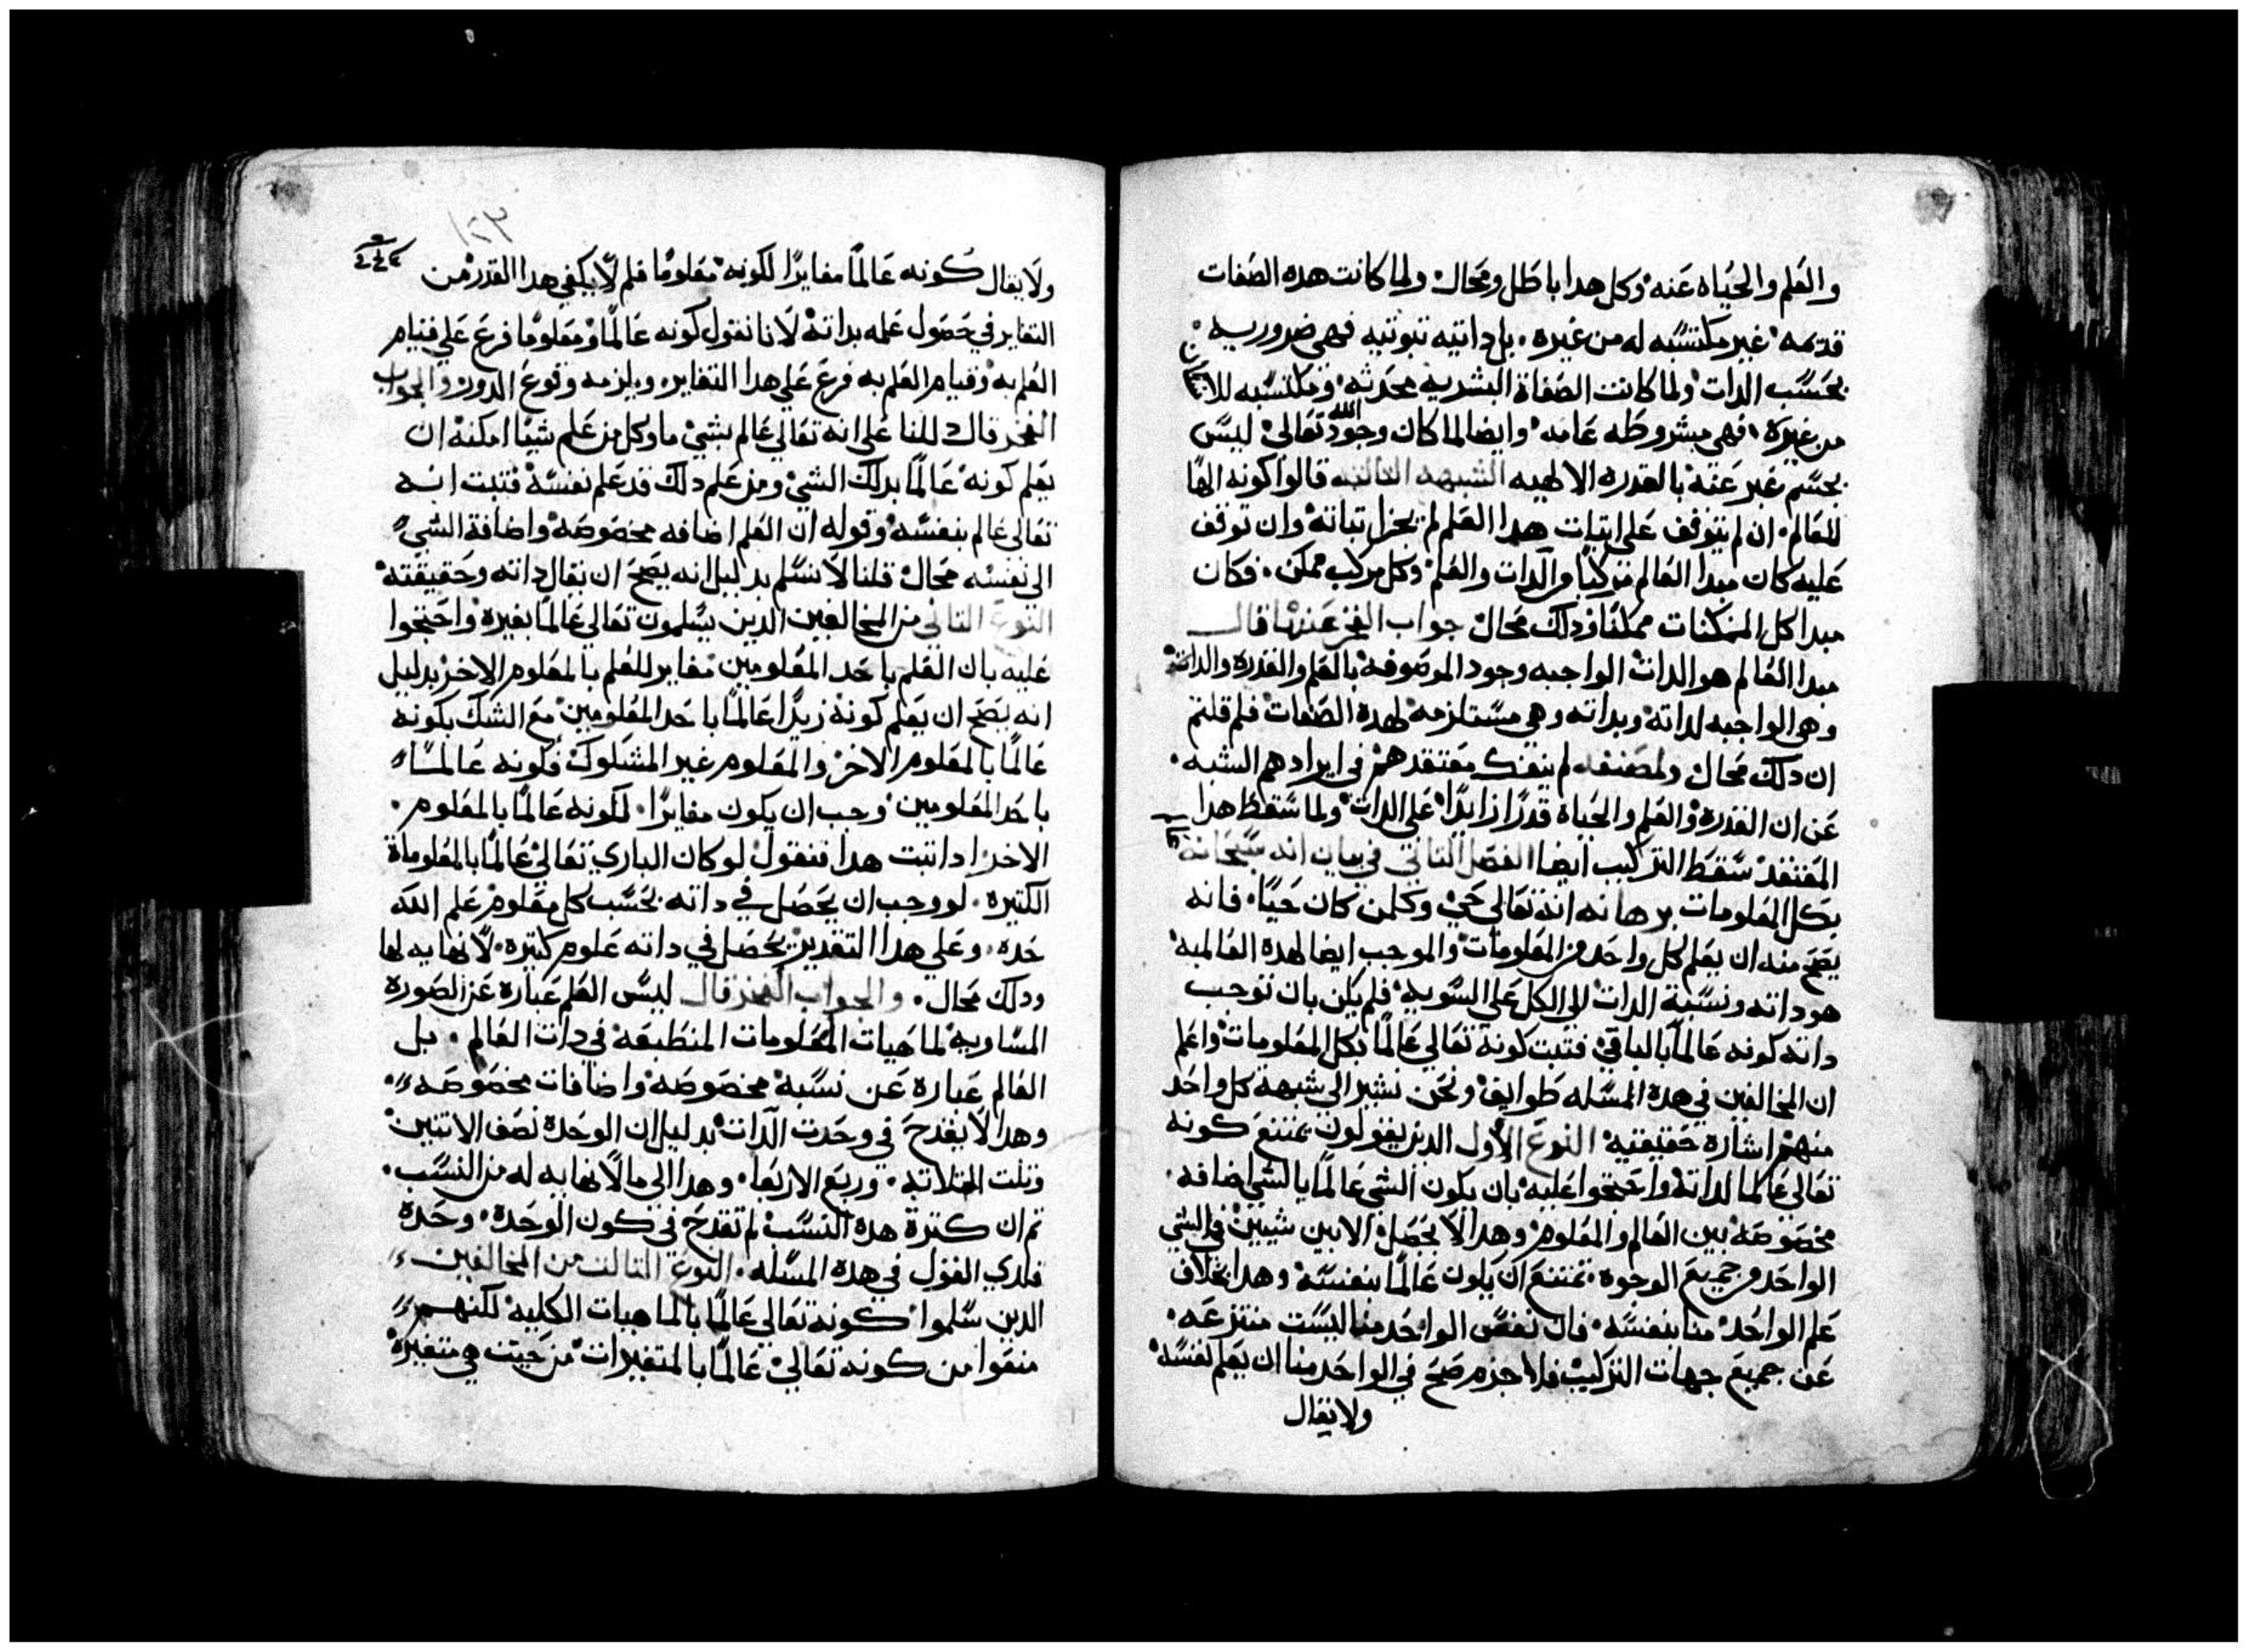 والعلم والحياه عنه وكل هدا باطل ومحال ولما كانت هده الصفات
قديمه غير مكتسبه له من غيره بل داتيه تبوتيه فهي ضروريه
بحسب الدات ولما كانت الصفاة البشريه محدثه ومكتسبه
من غيره فهي مشروطه عامه وايضا لما كان وجود الله تعالي ليس
بجسم غبر عنه بالقدره الالهيه الشبهه التالته قالوا كونه الها
للعالم ان لم يتوقف علي اتبات هدا العلم لم يجز اتباته وان توقف
عليه كان مبدا العالم مركبا من الدات والعلم وكل مركب ممكن فكان
مبدا كل الممكنات ممكنا وذلك محال جواب الفخر عنها قال
مبدا العالم هو الدات الواجبه وجود الموصوفه بالعلم والقدره والداته
وهي الواجبه لداته وبداته وهي مستلزمه لهده الصفات فلم قلتم
ان دلك محال ولمصنفه لم ينفك معتقدهم في ايرادهم الشبه
عن ان القدره والعلم والحياه قدرا زايدا علي الدات ولما سقط هدا
المعتقد سقط التركيب ايضا الفصل التاني في بيان انه سبحانه
بكل المعلومات برهانه انه تعالي حي وكلمن كان حيا فانه
يصح منه ان يعلم كل واحد من المعلومات والموجب ايضا لهده العالميه
هو داته ونسبة الدات الي الكل علي السويه فلم يكن بان توجب
داته كونه عالما بالباقي فتبت كونه تعالي عالما بكل المعلومات واعلم
ان المخالفين في هده المسله طوايف ونحن نشير الي شبهة كل واحد
منهم اشاره حقيقيه النوع الاول الدين يقولون يمتنع كونه
تعالي عالما لداته واحتجوا عليه بان يكون الشي عالما بالشي اضافه
مخصوصه بين العالم والمعلوم وهدا لا يحصل الا بين شيين في الشي
الواحد من جميع الوجوه يمتنع ان يكون عالما بنفسه وهدا بخلاف
علم الواحد منا بنفسه فان نفس الواحد منا ليست منتزعه
عن جميع جهات التركيب فلا جزم صح في الواحد منا ان يعلم نفسه
ولا يقال
١٢٣
ولا يقال كونه عالما مغايرا لكونه معلوما فلم لا يكفي هدا القدر من
التغاير في حصول علمه بداته لانا نقول كونه عالما ومعلوما فرع علي قيام
العلم به وقيام العلم به فرع علي هدا التغاير ويلزمه وقوع الدور والجواب
الفخر قال دللنا علي انه تعالي عالم بشي ما وكل من علم شيا امكنه ان
يعلم كونه عالما بدلك الشي ومن علم دلك قد علم نفسه فتبت انه
تعالي عالم بنفسه وقوله ان العلم اضافه مخصوصه واضافة الشي
الي نفسه محال قلنا لا نسلم بدليل انه يصح ان يقال داته وحقيقته
النوع التاني من المخالفين الدين يسلمون تعالي عالما بغيره واحتجوا
عليه بان العلم باحد المعلومين مغاير للعلم بالمعلوم الاخر بدليل
انه يصح ان يعلم كونه زيدا عالما باحد المعلومين مع الشك بكونه
عالما بالمعلوم الاخر والمعلوم غير المشكوك فكونه عالما
باحد المعلومين وجب ان يكون مغايرا لكونه عالما بالمعلوم
الاخر ادا تبت هدا فنقول لو كان الباري تعالي عالما بالمعلوماة
الكتيره لو وجب ان يحصل في داته بحسب كل معلوم علم الله
حده وعلي هدا التقدير يحصل في داته علوم كتيره لا نهايه لها
ودلك محال والجواب الفخر قال ليس العلم عباره عن الصوره
المساويه لماهيات المعلومات المنطبعه في دات العالم بل
العالم عباره عن نسبة مخصوصه واضافات مخصوصه
وهدا لا يقدح في وحدت الدات بدليل ان الوحده نصف الاتنين
وتلت التلاته وربع الاربعا وهدا الي ما لا نهايه له من النسب
تم ان كترة هده النسب لم تقدح في كون الوحدة وحدة
فكدي القول في هده المسله النوع التالت من المخالفين
الدين سلموا كونه تعالي عالما بالماهيات الكليه لكنهم
منعوا من كونه تعالي عالما بالمتغيرات من حيت هي متغيره